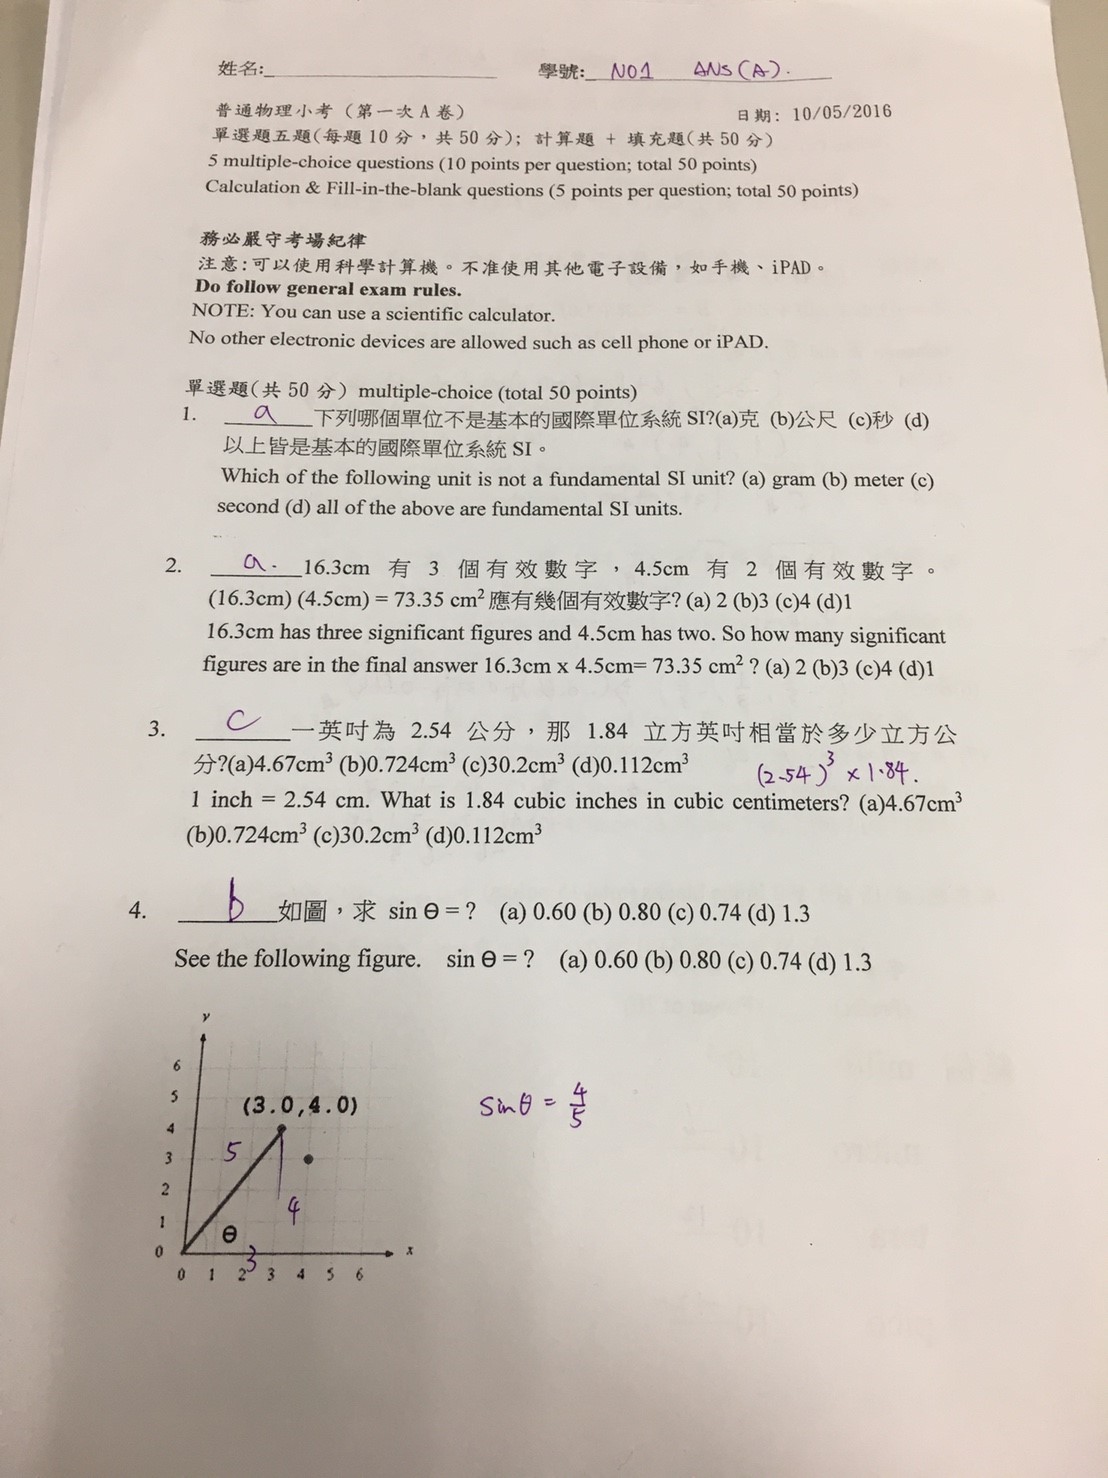 姓名:____________ 學號: NO1 ANS(A).
普通物理小考（第一次 A 卷） 日期: 10/05/2016
單選題五題(每題 10 分，共 50 分); 計算題 + 填充題(共 50 分)
5 multiple-choice questions (10 points per question; total 50 points)
Calculation & Fill-in-the-blank questions (5 points per question; total 50 points)
務必嚴守考場紀律
注意:可以使用科學計算機。不准使用其他電子設備，如手機、iPAD。
Do follow general exam rules.
NOTE: You can use a scientific calculator.
No other electronic devices are allowed such as cell phone or iPAD.
單選題(共 50 分) multiple-choice (total 50 points)
1. a 下列哪個單位不是基本的國際單位系統 SI?(a)克 (b)公尺 (c)秒 (d)
以上皆是基本的國際單位系統 SI。
Which of the following unit is not a fundamental SI unit? (a) gram (b) meter (c)
second (d) all of the above are fundamental SI units.
2. a. 16.3cm 有 3 個有效數字，4.5cm 有 2 個有效數字。
(16.3cm) (4.5cm) = 73.35 cm² 應有幾個有效數字? (a) 2 (b)3 (c)4 (d)1
16.3cm has three significant figures and 4.5cm has two. So how many significant
figures are in the final answer 16.3cm x 4.5cm= 73.35 cm² ? (a) 2 (b)3 (c)4 (d)1
3. c 一英吋為 2.54 公分，那 1.84 立方英吋相當於多少立方公
分?(a)4.67cm³ (b)0.724cm³ (c)30.2cm³ (d)0.112cm³
(2.54)³ × 1.84.
1 inch = 2.54 cm. What is 1.84 cubic inches in cubic centimeters? (a)4.67cm³
(b)0.724cm³ (c)30.2cm³ (d)0.112cm³
4. b 如圖，求 sin θ = ? (a) 0.60 (b) 0.80 (c) 0.74 (d) 1.3
See the following figure. sin θ = ? (a) 0.60 (b) 0.80 (c) 0.74 (d) 1.3
y
6
5
(3.0,4.0)
sinθ = 4/5
4
5
3
2
4
1
θ
0
3
x
0 1 2 3 4 5 6